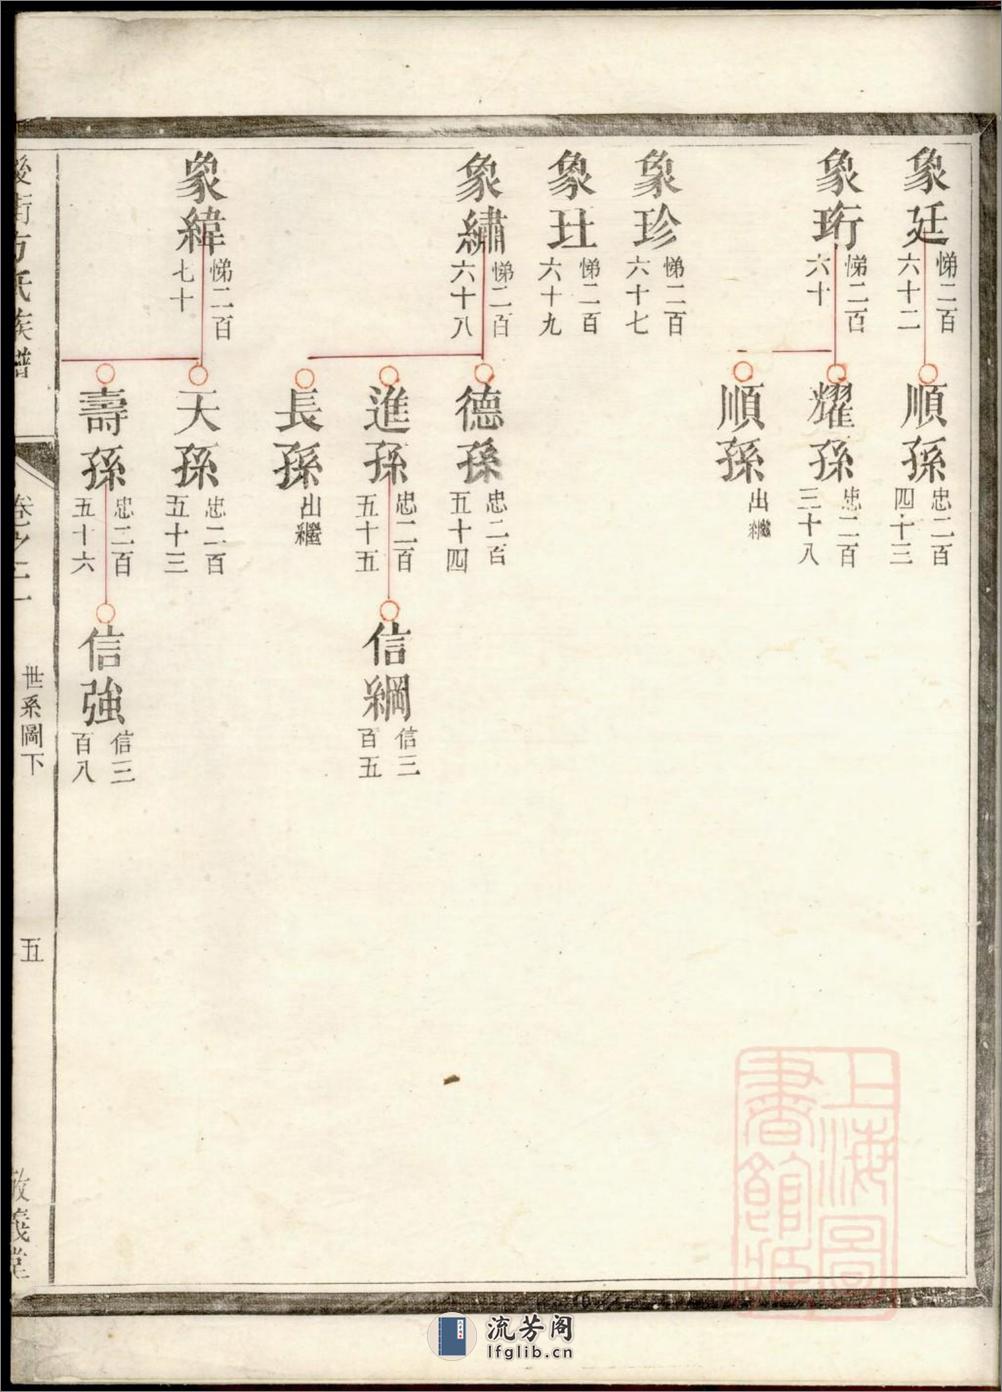 象廷
悌二百
六十二
順孫
忠二百
四十三
象珩
悌二百
六十
耀孫
忠二百
三十八
順孫
出繼
象珍
悌二百
六十七
象玨
悌二百
六十九
象繡
悌二百
六十八
德孫
忠二百
五十四
進孫
忠二百
五十五
信綱
信三
百五
長孫
出繼
象緯
悌二百
七十
天孫
忠二百
五十三
壽孫
忠二百
五十六
信強
信三
百八
後街方氏族譜
卷之二
世系圖下
五
敦義堂
上海圖
書館藏
流芳阁
lfglib.cn